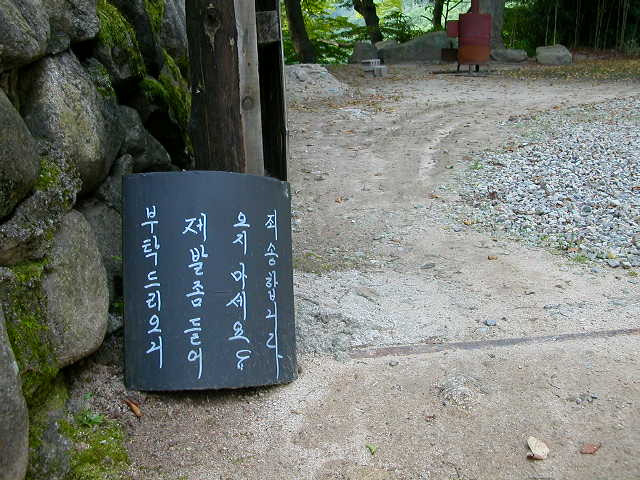 부탁드리오니
제발좀들어
오지마세요
죄송합니다